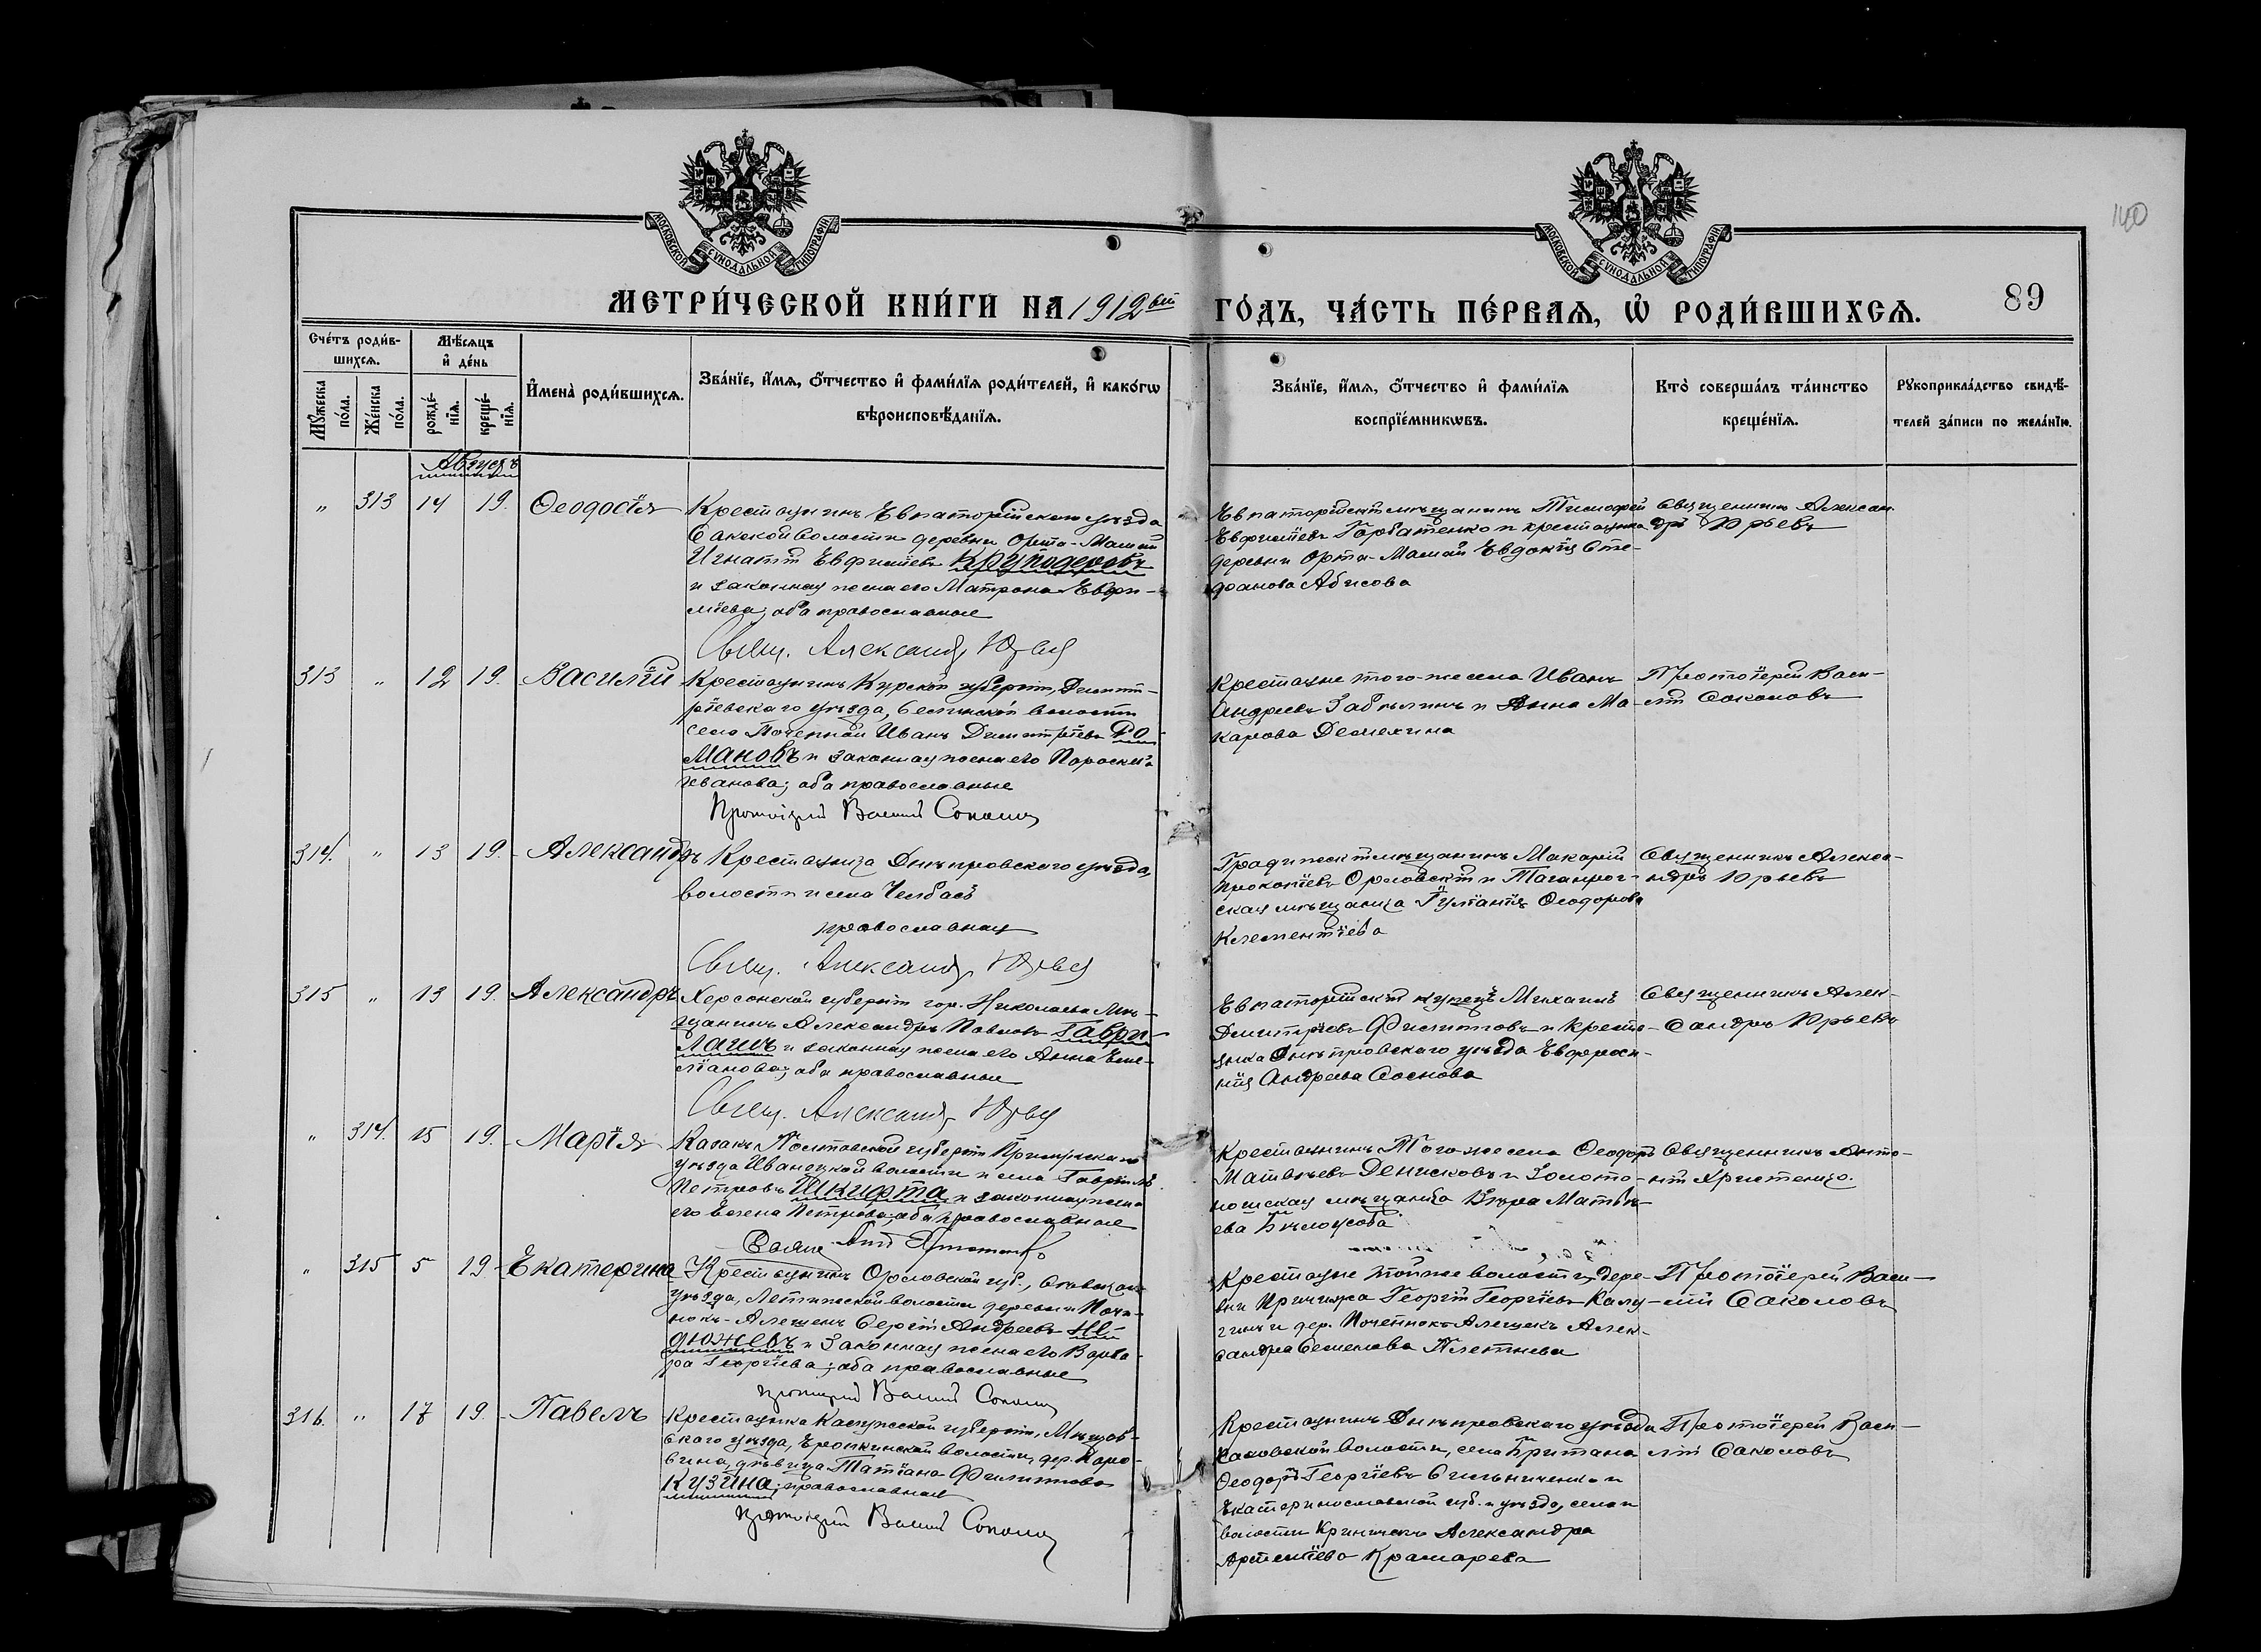 МОСКОВСКОЙ СѴНОДАЛЬНОЙ ТИПОГРАФІИ
МОСКОВСКОЙ СѴНОДАЛЬНОЙ ТИПОГРАФІИ
МЕТРИ́ЧЕСКОЙ КНИ́ГИ НА 1912ый ГО́ДЪ, ЧА́СТЬ ПЕ́РВАЯ, Ѡ҆ РОДИ́ВШИХСЯ.
89
Сче́тъ роди́в-
шихся.
Мѣ́сяцъ
и҆ де́нь
Мꙋ́жеска
по́ла.
Же́нска
по́ла.
рожде́-
нїя.
креще́-
нїя.
И҆мена̀ роди́вшихся.
Зва́нїе, и҆́мя, ѻ҆́тчество и҆ фами́лїя роди́телей, и҆ како́гѡ
вѣроисповѣ́данїя.
Зва́нїе, и҆́мя, ѻ҆́тчество и҆ фами́лїя
воспрїе́мникѡвъ.
Кто̀ соверша́лъ та́инство
креще́нїя.
Рꙋкоприкла́дство свидѣ́-
телей за́писи по жела́нїю.
Августъ
„ 313 14 19. Ѳеодосія
Крестьянинъ Евпаторійскаго уѣзда
Сакской волости деревни Орта-Мамай
Игнатій Евфиміевъ
и законная жена его Матрона Евфи-
міева, оба православные
Свящ. Александръ Юрьевъ
Евпаторійскій мѣщанинъ Тимофей
Евфиміевъ Горбатенко и крестьянка
деревни Орта-Мамай Евдокія Сте-
фанова Абисова
Священникъ Алексан
дръ Юрьевъ
313 „ 12 19. Василій
Крестьянинъ Курской губерніи, Дмит-
ріевскаго уѣзда, волости
село Иванъ Димитріевъ Ро-
мановъ и законная жена его Параскева
Иванова; оба православные
Протоіерей Василій Соколовъ
Крестьяне того-же села Иванъ
Андреевъ Забѣлинъ и Анна Ма-
карова Демехина
Протоіерей Васи-
лій Соколовъ
314. „ 13 19. Александръ
Крестьянка Днѣпровскаго уѣзда,
волости и села Челбасъ
православная
Свящ. Александръ Юрьевъ
Градижскій мѣщанинъ Макарій
Прокопіевъ Орловскій и Таганрог-
ская мѣщанка Іуліанія Ѳеодорова
Клементіева
Священникъ Алекса-
ндръ Юрьевъ
315 „ 13 19. Александръ
Херсонской губерніи гор. Николаева Мѣ-
щанинъ Александръ Павловъ Гаври-
лашъ и законная жена его Анна Еме-
ліанова; оба православные
Свящ. Александръ Юрьевъ
Евпаторійскій купецъ Михаилъ
Димитріевъ Филипповъ и кресть-
янка Днѣпровскаго уѣзда Евфроси-
нія Андреева Соснова
Священникъ Алек-
сандръ Юрьевъ
„ 314. 15 19. Марія
Казакъ Полтавской губерніи Прилукскаго
уѣзда Иваницкой волости и села Гавріилъ
Петровъ Шкирта и законная жена
его Елена Петрова; оба православные
Свящ. Ант. Христенко
Крестьянинъ Того-же села Ѳеодоръ
Матвѣевъ Денисковъ и Золото-
ношская мѣщанка Вѣра Матвѣ-
ева Бѣлоусова
Священникъ Анто-
ній Христенко.
„ 315 5 19 Екатерина
Крестьянинъ Орловской губ., Сѣвскаго
уѣзда, волости деревни Поче-
покъ-Алешекъ Сергій Андреевъ Не-
дюжевъ и Законная жена его Варва-
ра Георгіева; оба православные
Протоіерей Василій Соколовъ
Крестьяне той-же волости, дере-
вни Причижа Георгій Георгіевъ Калу-
гинъ и дер. Почепокъ-Алешекъ Алек-
сандра Семенова Плетнева
Протоіерей Васи-
лій Соколовъ
316. „ 17 19. Павелъ
Крестьянка Калужской губерніи, Мещов-
скаго уѣзда, волости, дер.
дѣвица Татіана Филиппова
Кузина; православная
Протоіерей Василій Соколовъ
Крестьянинъ Днѣпровскаго уѣзда
Каховской волости, села Британа
Ѳеодоръ Георгіевъ Сильниченко и
Екатеринославской губ. и уѣзда, села и
волости Кринички Александра
Артеміева Крамарева
Протоіерей Васи-
лій Соколовъ